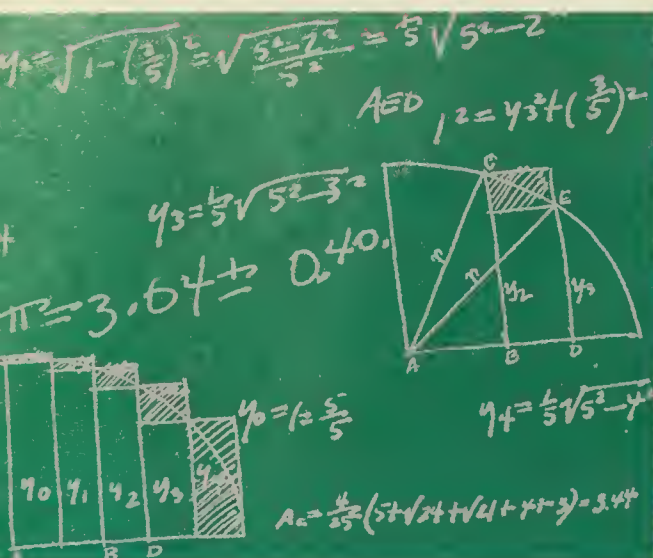 y₂=√1-(2/5)² = √5²-2²/5² = 1/5 √5²-2
AED 1²=y₃²+(3/5)²
y₃=1/5 √5²-3²
π=3.64± 0.40.
C
E
r
r
y₂
y₃
A B D
y₀=1=5/5
y₄=1/5 √5²-4
y₀ y₁ y₂ y₃ y
B D
=4/25 (5+√24+√21+4+3)=3.44